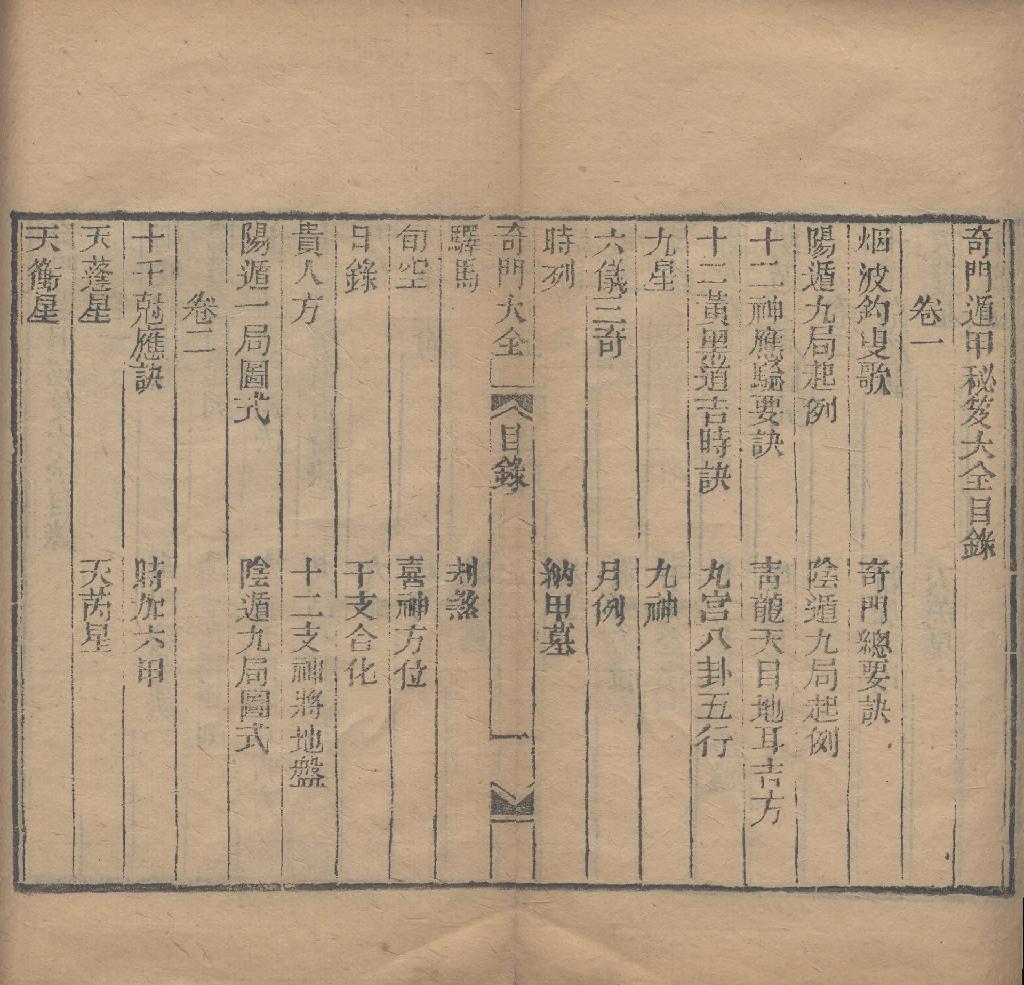 奇門遁甲秘笈大全目錄
卷一
烟波釣叟歌　奇門總要訣
陽遁九局起例　陰遁九局起例
十二神應驗要訣　青龍天目地耳吉方
十二黃黑道吉時訣　九宮八卦五行
九星　九神
六儀三奇　月例
時列　納甲墓
奇門大全　目錄　一
驛馬　刦煞
旬空　喜神方位
日錄　干支合化
貴人方　十二支神將地盤
陽遁一局圖式　陰遁九局圖式
卷二
十干尅應訣　時加六甲
天蓬星　天芮星
天衝星